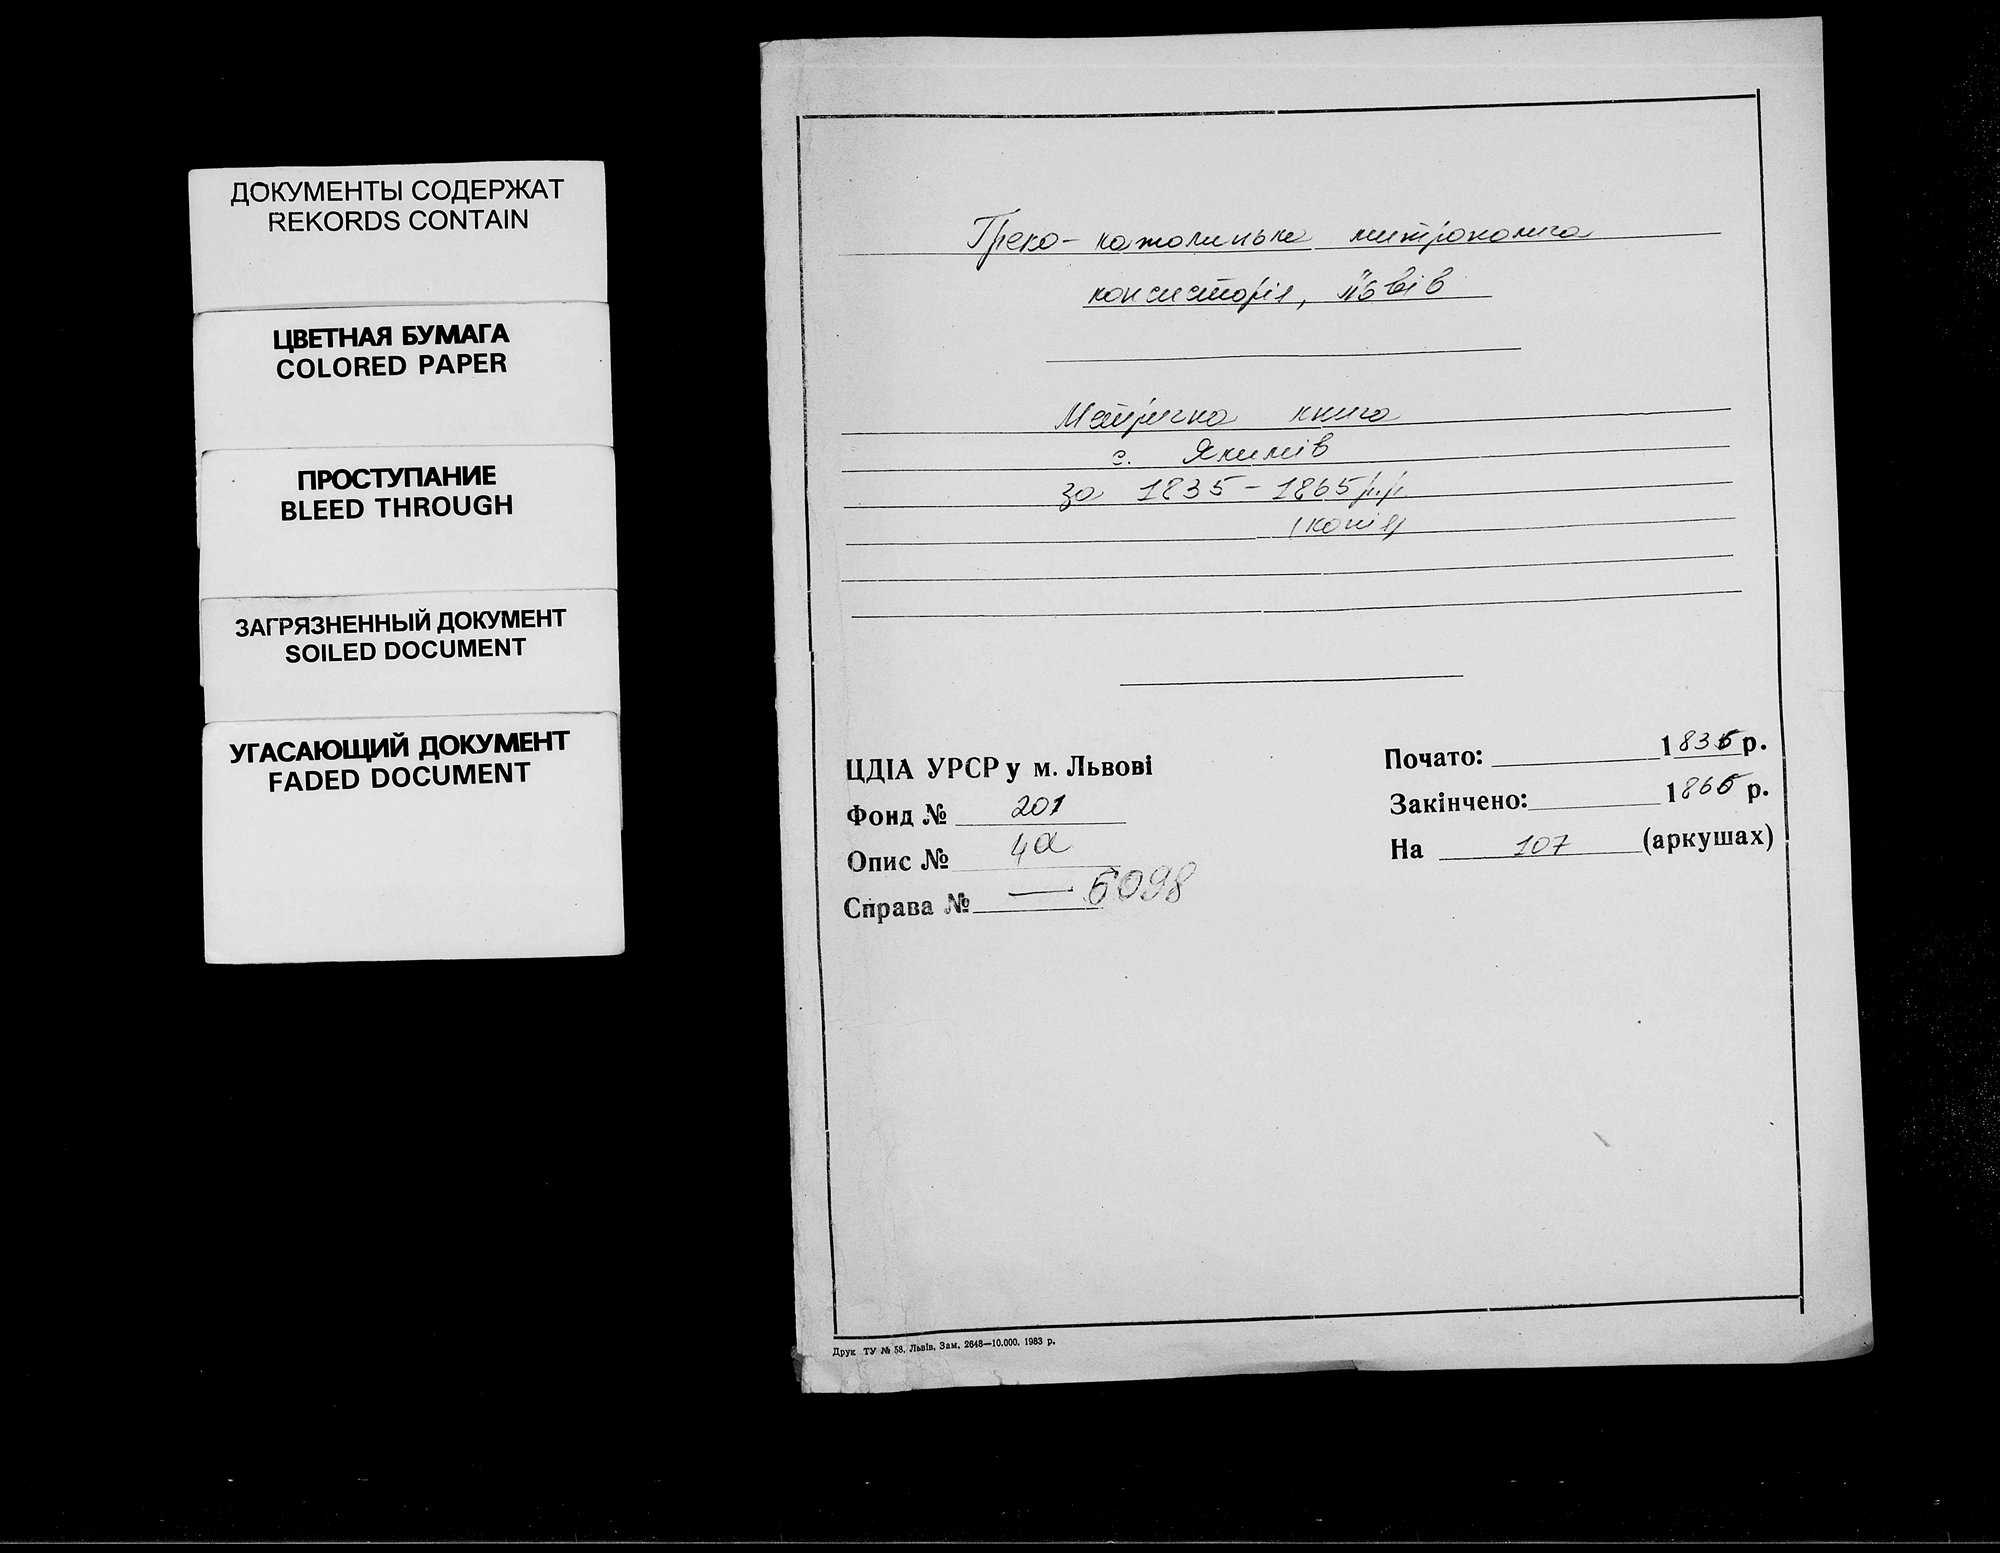 ДОКУМЕНТЫ СОДЕРЖАТ
REKORDS CONTAIN
ЦВЕТНАЯ БУМАГА
COLORED PAPER
ПРОСТУПАНИЕ
BLEED THROUGH
ЗАГРЯЗНЕННЫЙ ДОКУМЕНТ
SOILED DOCUMENT
УГАСАЮЩИЙ ДОКУМЕНТ
FADED DOCUMENT
Греко-католицька митрополича
консисторія, Львів
Метрична книга
с. Якимів
за 1835-1865 р.р.
(копія)
ЦДІА УРСР у м. Львові
Фонд № 201
Опис № 4а
Справа № — 5098
Почато: 1835 р.
Закінчено: 1865 р.
На 107 (аркушах)
Друк ТУ № 58. Львів. Зам. 2648—10.000. 1983 р.